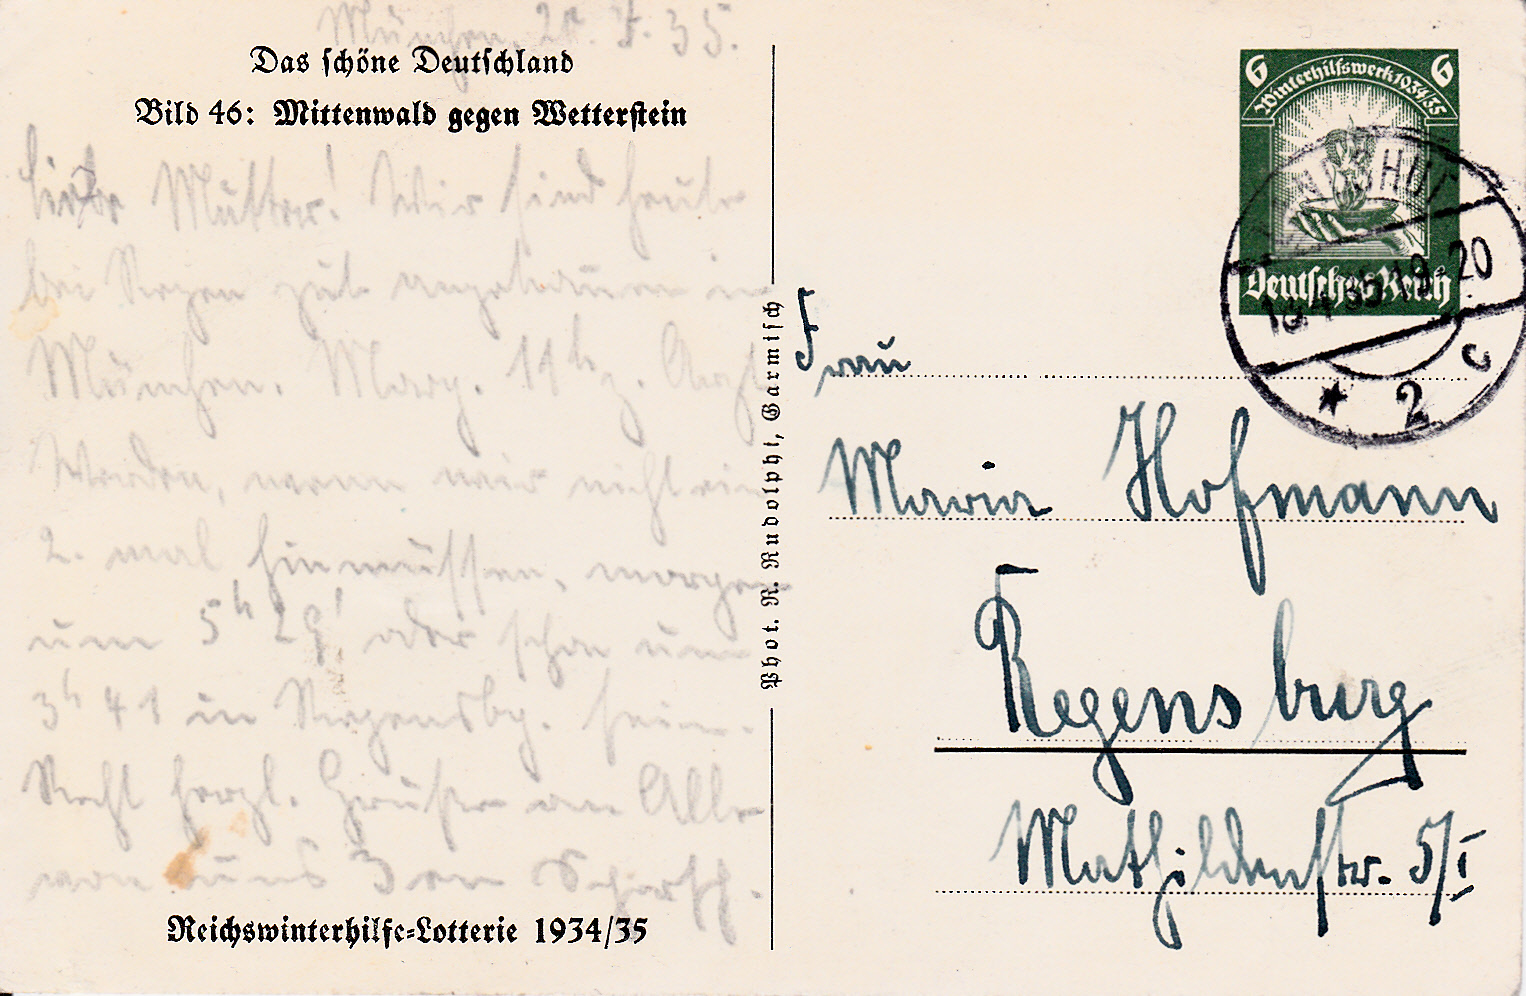 München, 20. 4. 35.
Das schöne Deutschland
Bild 46: Mittenwald gegen Wetterstein
Liebe Mutter! Wir sind heute
bei Regen gut angekommen in
München.
Werden, wenn wir nicht ein
2. mal hinmüssen, morgen
um 5h 29' oder schon um
3h 41 in Regensbg. sein.
Recht herzl. Grüße an Alle
von uns 3en
Reichswinterhilfe-Lotterie 1934/35
Phot. R. Rudolphi, Garmisch
6 6
Winterhilfswerk 1934/35
Deutsches Reich
LANDSHUT
19-20
* 2 c
Frau
Maria Hofmann
Regensburg
Mathildenstr. 5/I